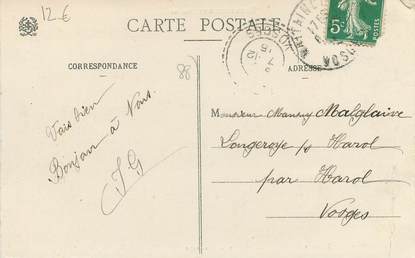 12 €
CARTE POSTALE
5c
POSTES
CORRESPONDANCE
88
ADRESSE
Vais bien
Bonjour à Vous.
JG
Monsieur Mansuy Malglaive
Longeroye p/ Harol
par Harol
Vosges